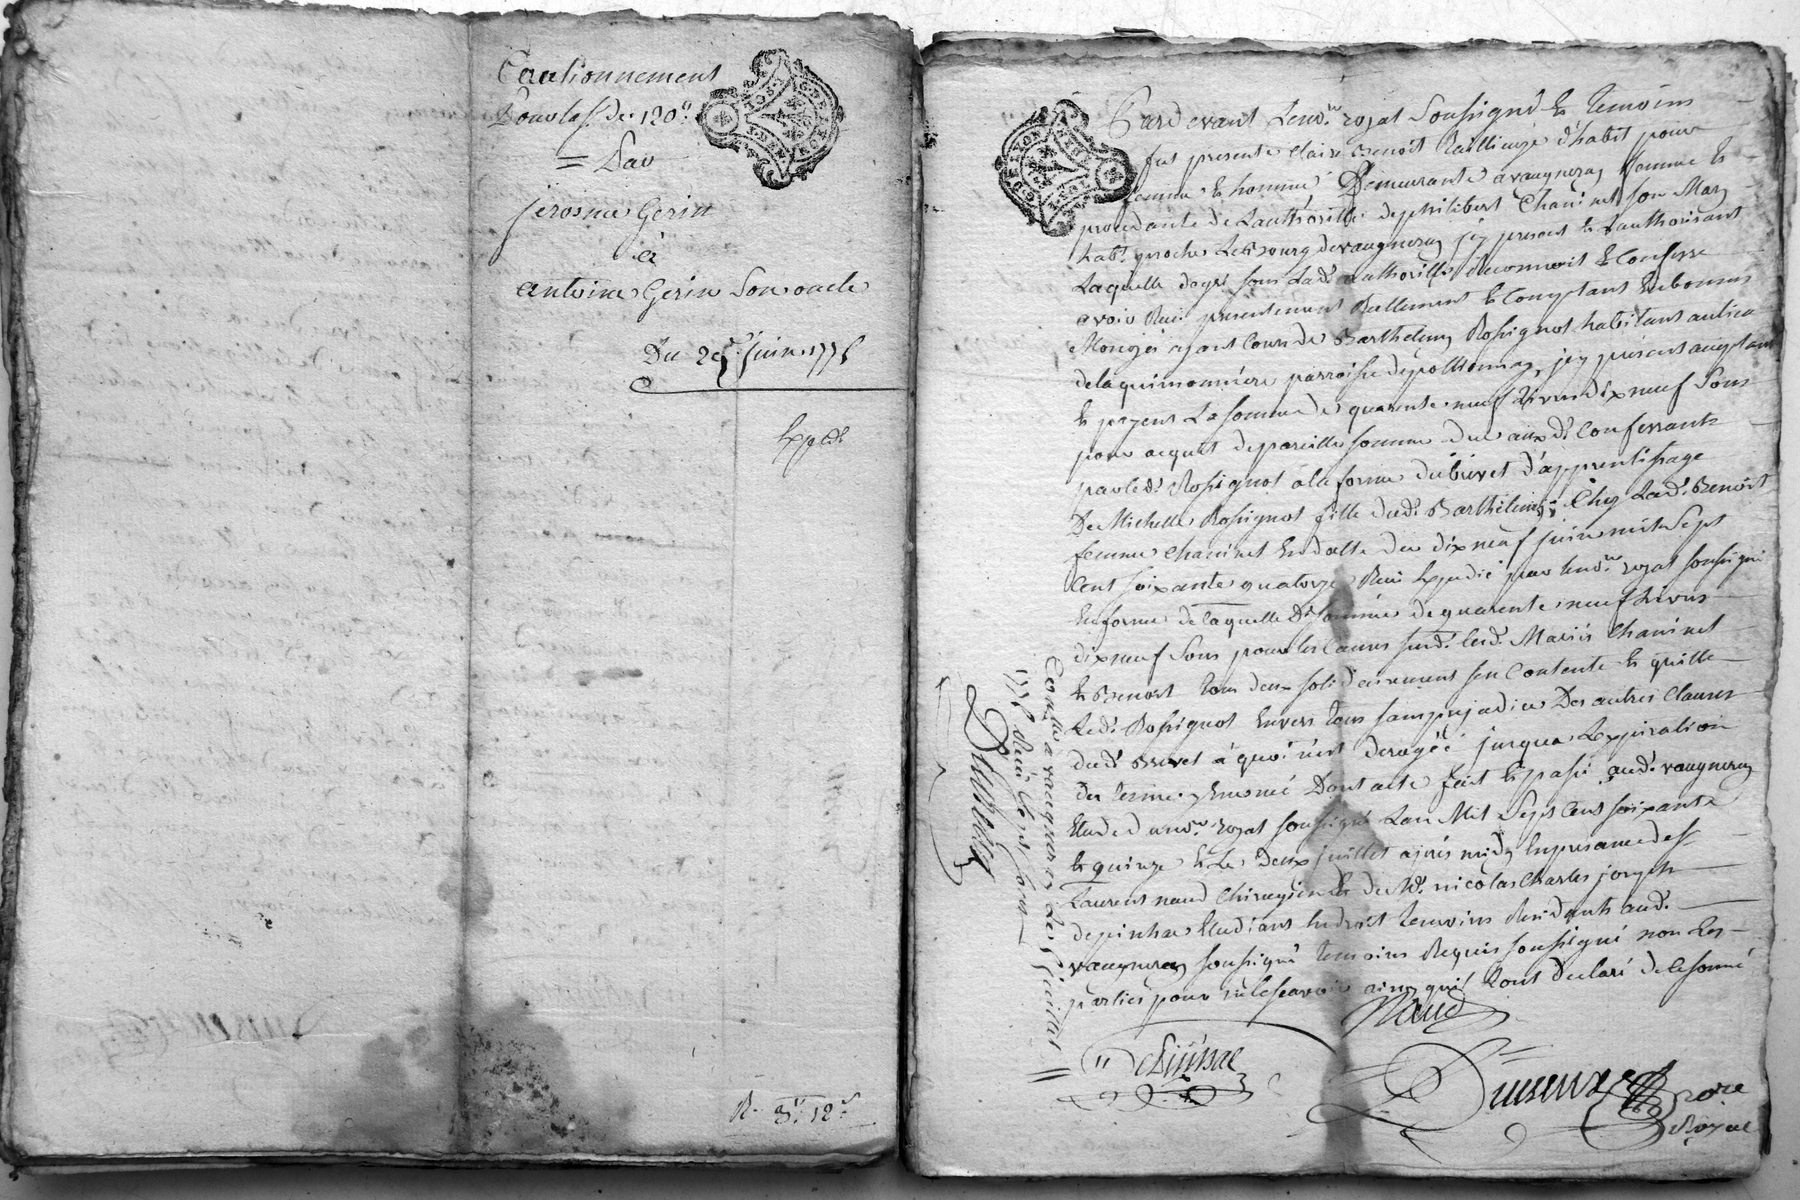 Cautionnement
Pour la s. de 120ll
= Par
jerosme Gerin
à
antoine Gerin Son oncle
Du 29e juin 1775
Expédié
R. 3ll 12s
Pardevant Le nore royal Soussigné et temoins
fut presente Claire Benoît tailleuze d'habit pour
femme et homme Demeurante a vaugneray femme et
procedante de L'authorité de philibert Chavinet son Mary
habt proche Le Bourg de vaugneray jcy present et L'authorisant
Laquelle de gré sous Lade authorité reconnoit et Confesse
avoir Reçu presentement Reellement et Comptant En bonnes
Monoyes ayant Cours de Barthelemy Rossignol habitant au lieu
de la quimonniere parroisse de pollionnay, jcy present acceptant
et payent La somme de quarente neuf Livres dix neuf Sous
pour acquit de pareille somme due aux ds Confessants
par led. Rossignol à la forme du brevet d'apprentissage
De Michelle Rossignol fille dud. Barthelemy Chez Lade Benoît
femme Chavinet En datte du dix neuf juin mil Sept
Cent soixante quatorze Reçu Expedié par Le nore royal soussigné
En forme de laquelle de somme de quarente neuf Livres
dix neuf Sous pour les Causes susd. lesd. Mariés Chavinet
et Benoit tous deux solidairement sen Contente et quitte
Led. Rossignol Envers tous sans prejudice Des autres Clauses
dud. Brevet à quoi n'est derogéé jusqua L'expiration
du terme y Enoncé Dont acte fait et passé aud. vaugneray
Etude du nore royal soussigné L'an Mil Sept Cent soixante
et quinze et Le Deux juillet après midy En presance de sr
Laurent naud Chirurgien et de Mr nicolas Charles joseph
depinhac Etudiant En droit temoins Residants aud.
vaugneray soussigné temoins Requis soussigné non Les
parties pour ne le scavoir ainsy qu'ils L'ont declaré de ce sommé
Naud
Duseuzey nore
Royal
Conllé a vaugneray Le 9 juillet
1775 Recu treize sous